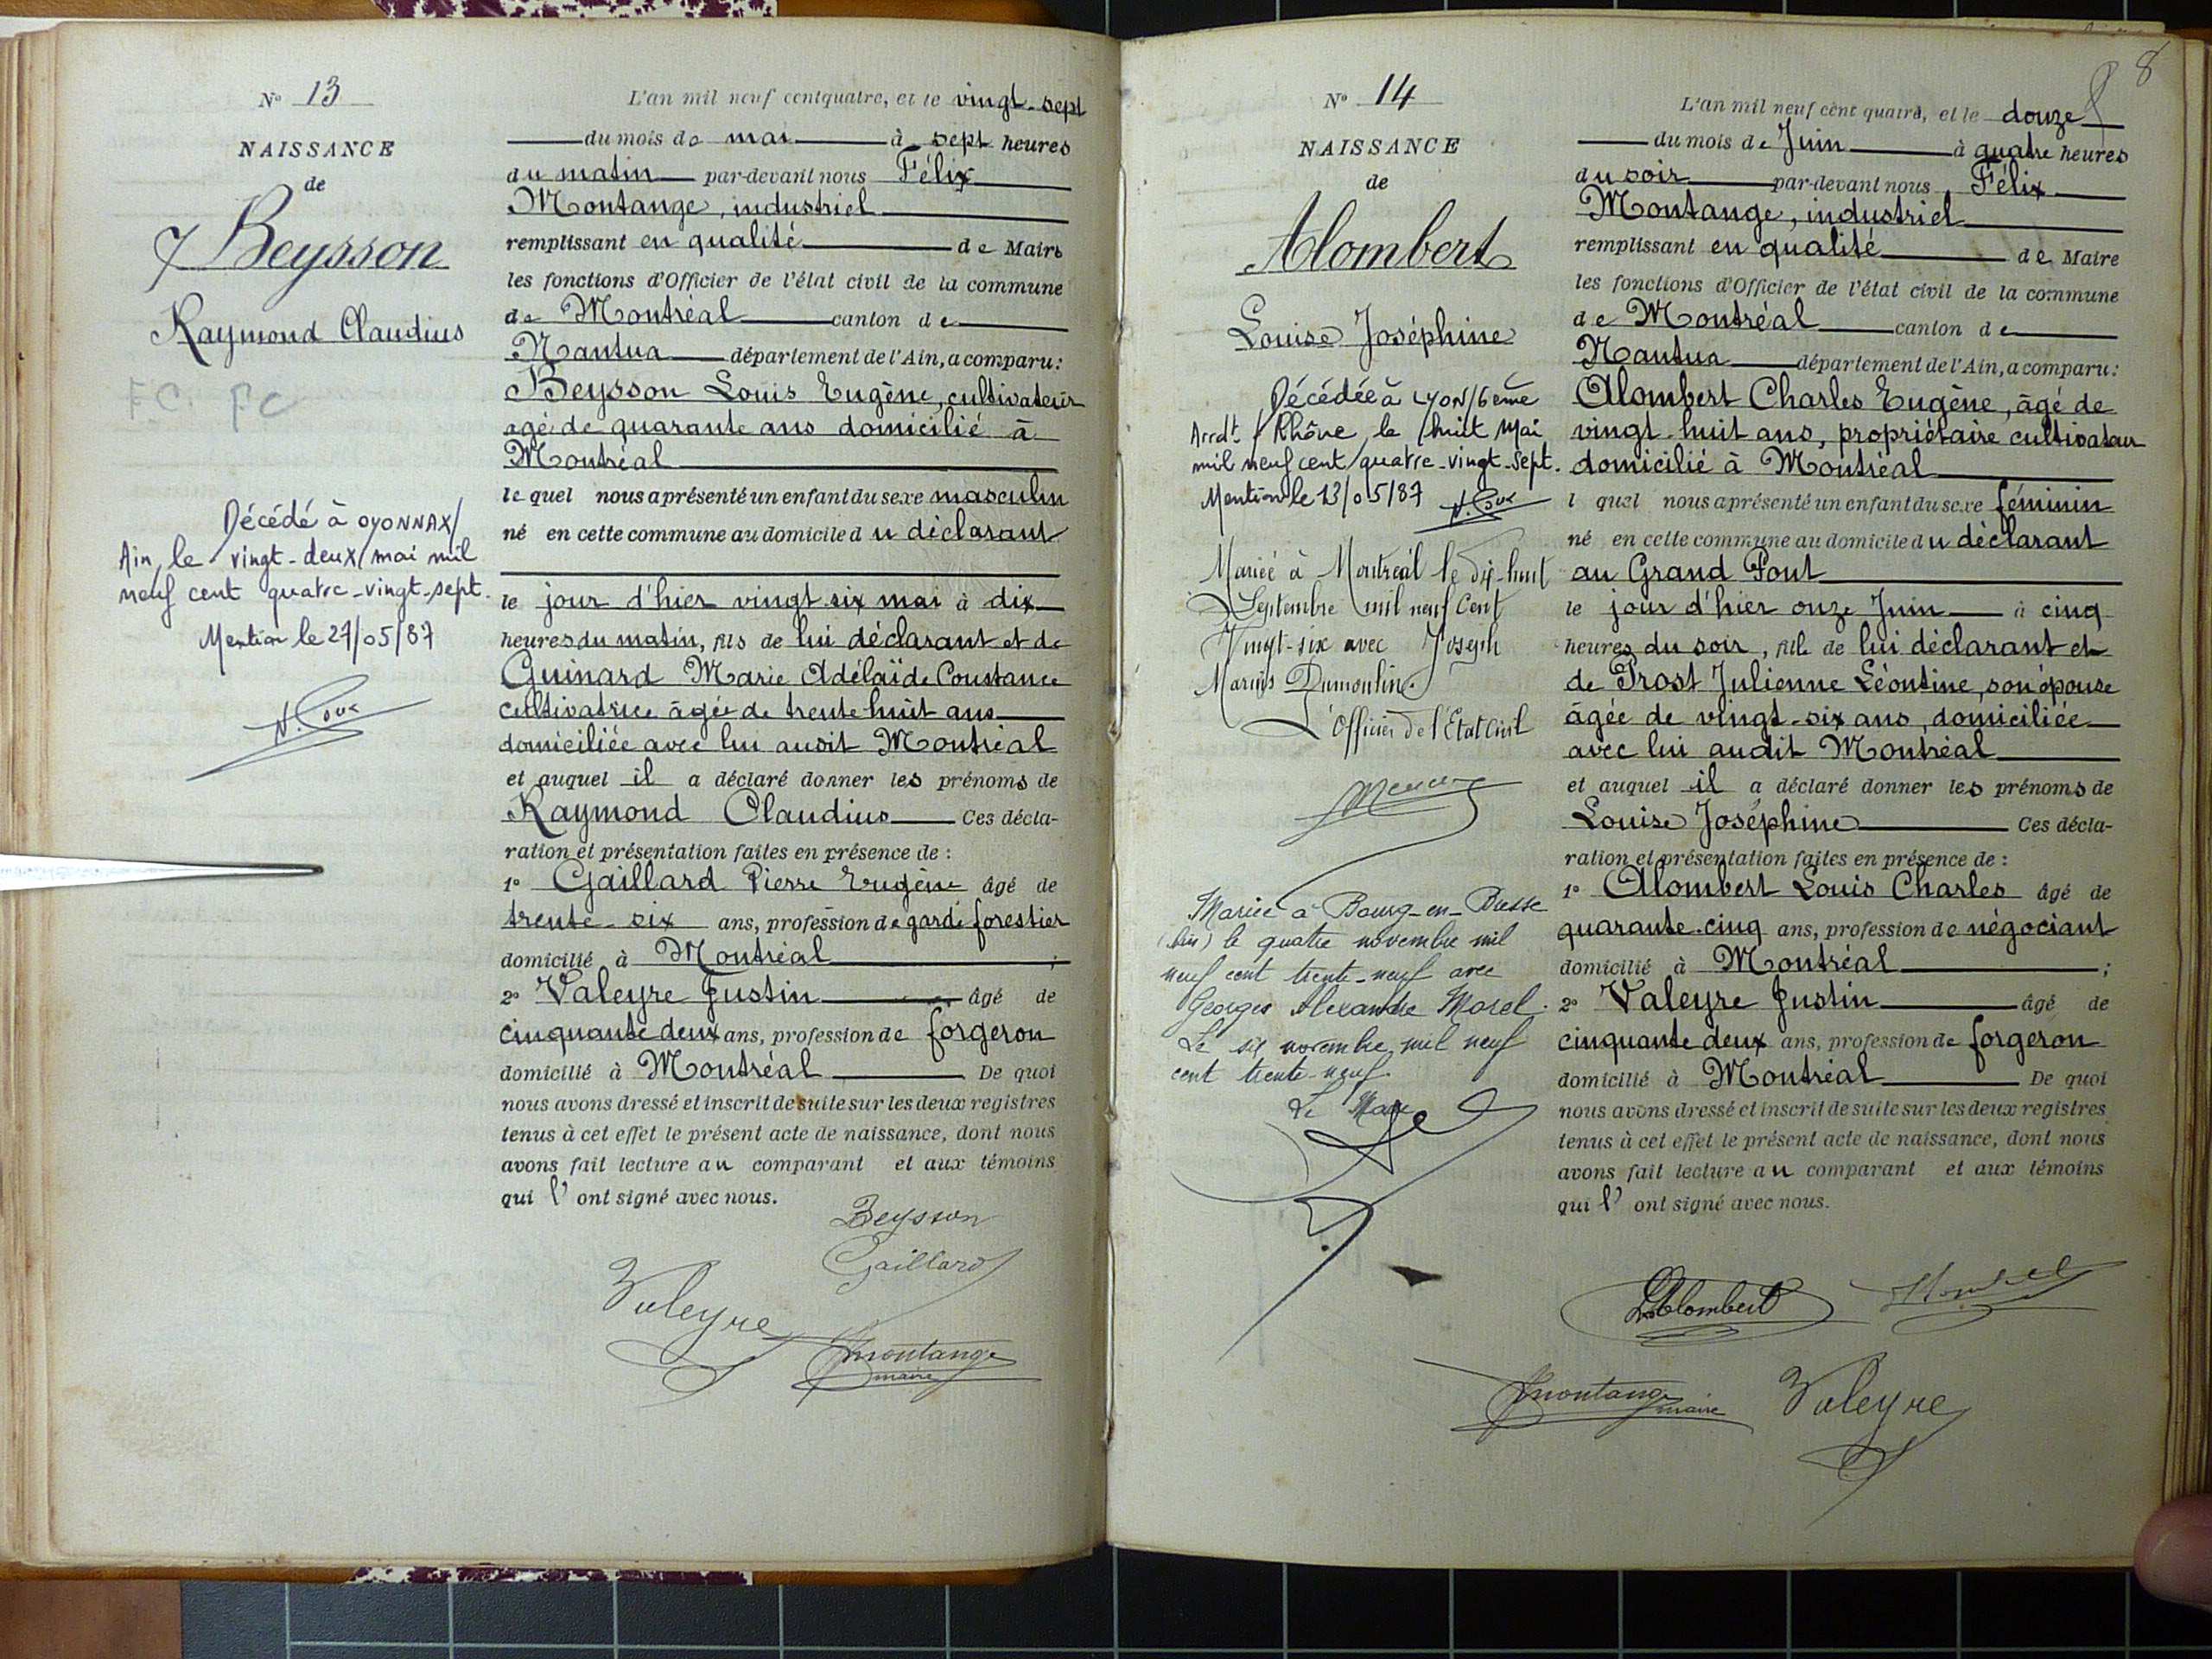 N° 13
NAISSANCE
de
Beysson
Raymond Claudius
FC. FC
Décédé à OYONNAX/
Ain, le vingt-deux mai mil
neuf cent quatre-vingt-sept.
Mention le 27/05/87
L'an mil neuf cent quatre, et le vingt-sept
du mois de mai à sept heures
du matin par-devant nous Félix
Montange, industriel
remplissant en qualité de Maire
les fonctions d'Officier de l'état civil de la commune
de Montréal canton de
Nantua département de l'Ain, a comparu:
Beysson Louis Eugène, cultivateur
agé de quarante ans domicilié à
Montréal
le quel nous a présenté un enfant du sexe masculin
né en cette commune au domicile du déclarant
le jour d'hier vingt-six mai à dix
heures du matin, fils de lui déclarant et de
Guinard Marie Adélaïde Constance
cultivatrice âgée de trente huit ans
domiciliée avec lui audit Montréal
et auquel il a déclaré donner les prénoms de
Raymond Claudius Ces décla-
ration et présentation faites en présence de :
1° Gaillard Pierre Eugène âgé de
trente-six ans, profession de garde forestier
domicilié à Montréal ;
2° Valeyre Justin âgé de
cinquante deux ans, profession de forgeron
domicilié à Montréal De quoi
nous avons dressé et inscrit de suite sur les deux registres
tenus à cet effet le présent acte de naissance, dont nous
avons fait lecture au comparant et aux témoins
qui l' ont signé avec nous.
Beysson
Gaillard
Valeyre
Montange
maire
8
N° 14
NAISSANCE
de
Alombert
Louise Joséphine
Décédée à LYON/6ème
Arrdt / Rhône, le huit Mai
mil neuf cent quatre-vingt-sept.
Mention le 13/05/87
Mariée à Montréal le dix-huit
Septembre mil neuf Cent
Vingt-six avec Joseph
Marius Dumoulin.
L'Officier de l'Etat Civil
Mariée à Bourg-en-Bresse
(Ain) le quatre novembre mil
neuf cent trente-neuf avec
Georges Alexandre Morel.
Le six novembre mil neuf
cent trente-neuf.
Le Maire
L'an mil neuf cent quatre, et le douze
du mois de Juin à quatre heures
du soir par-devant nous Félix
Montange, industriel
remplissant en qualité de Maire
les fonctions d'Officier de l'état civil de la commune
de Montréal canton de
Nantua département de l'Ain, a comparu:
Alombert Charles Eugène, âgé de
vingt-huit ans, propriétaire cultivateur
domicilié à Montréal
l quel nous a présenté un enfant du sexe féminin
né en cette commune au domicile du déclarant
au Grand Pont
le jour d'hier onze Juin à cinq
heures du soir, fille de lui déclarant et
de Prost Julienne Léontine, son épouse
âgée de vingt-six ans, domiciliée
avec lui audit Montréal
et auquel il a déclaré donner les prénoms de
Louise Joséphine Ces décla-
ration et présentation faites en présence de :
1° Alombert Louis Charles âgé de
quarante-cinq ans, profession de négociant
domicilié à Montréal ;
2° Valeyre Justin âgé de
cinquante deux ans, profession de forgeron
domicilié à Montréal De quoi
nous avons dressé et inscrit de suite sur les deux registres
tenus à cet effet le présent acte de naissance, dont nous
avons fait lecture au comparant et aux témoins
qui l' ont signé avec nous.
Alombert
Montange
maire
Valeyre